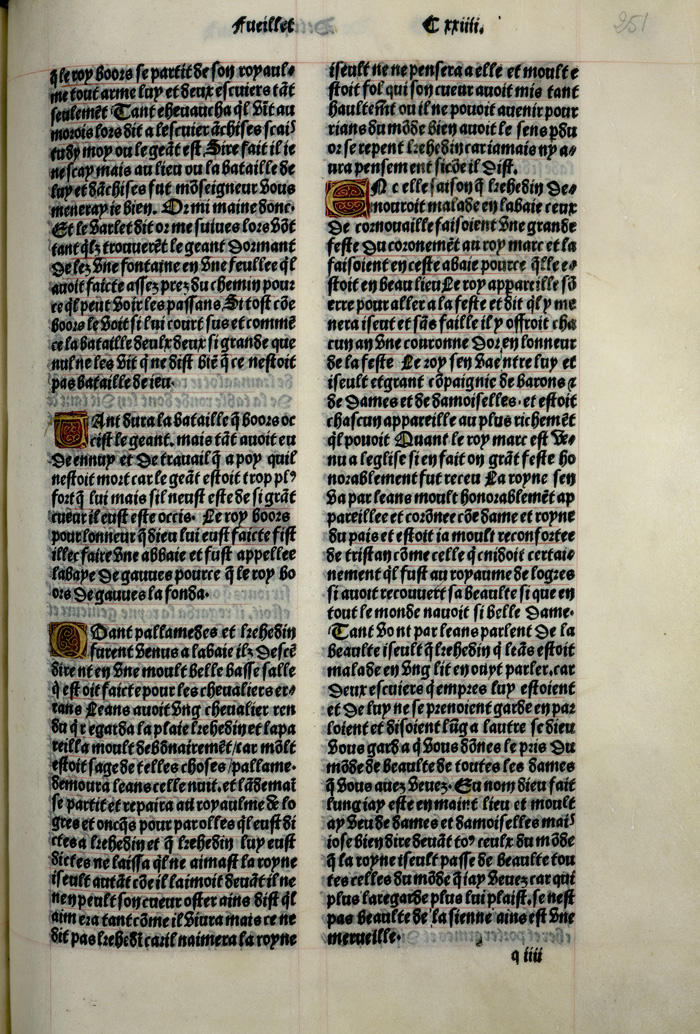 Fueillet C xxiiii.
251
q̃ le roy boors se partit de son royaul⸗
me tout arme luy et deux escuiers tãt
seulemẽt Tant cheuaucha ql̃ vĩt au
morois lors dit a lescuier ãchises scaiſ
tu dy moy ou le geãt est. Sire fait il ie
ne scay mais au lieu ou la bataille de
luy et dãchises fut mõseigneur vous
meneray ie bien. Or mi maine donc.
Et le varlet dit or me suiues lors võt
tant ql̃z trouuerẽt le geant dormant
de lez vne fontaine en vne feullee ql̃
auoit faicte assez prez du chemin pour
ce ql̃ peut voir les passans. Si tost cõe
boors le voit si lui court sus et commẽ
ce la bataille deulx deux si grande que
nul ne les vit q̃ ne dist biẽ q̃ ce nestoit
pas bataille de ieu.
Tant dura la bataille q̃ boors oc
cist le geant. mais tãt auoit eu
de ennuy et de trauail q̃ a poy quil
nestoit mort car le geãt estoit trop pl⁹
fort q̃ lui mais sil neust este de si grãt
cueur il eust este occis. Le roy boors
pour lonneur q̃ dieu lui eust faicte fist
illec faire vne abbaie et fust appellee
labaye de gauues pource q̃ le roy bo
ors de gauues la fonda.
Quant pallamedes et kehedin
furent venus a labaie ilz descẽ
dirent en vne moult belle basse salle
q̃ estoit faicte pour les cheualiers er⸗
rans Leans auoit vng cheualier ren
du q̃ regarda la plaie kehedin et lapa
reilla moult debõnairemẽt/car mõlt
estoit sage de telles choses/pallame.
demoura leans celle nuit. et lãdemaĩ
se partit et repaira au royaulme de lo
gres et oncq̃s pour parolles ql̃ eust di
ctes a kehedin et q̃ kehedin luy eust
dictes ne laissa ql̃ ne aimast la royne
iseult autãt cõe il laimoit deuãt il ne
nen peult son cueur oster ains dist ql̃
aimera tant cõme il viura mais ce ne
dit pas kehedĩ car il naimera la royne
iseult ne ne pensera a elle et moult e
stoit fol qui son cueur auoit mis tant
haultemẽt ou il ne pouoit auenir pour
rians du mõde bien auoit le sens pdu
or se repent kehedin car iamais ny a⸗
ura pensement sicõe il dist.
EN celle saison q̃ kehedin de⸗
mouroit malade en labaie ceux
de cornouaille faisoient vne grande
feste du coronemẽt au roy marc et la
faisoient en ceste abaie pource q̃lle e⸗
stoit en beau lieu Le roy appareille sõ
erre pour aller a la feste et dit ql̃ y me
nera iseut et sãs faille il y offroit cha
cun an vne couronne dor en lonneur
de la feste Le roy sen va entre luy et
iseult et grant cõpaignie de barons ⁊
de dames et de damoiselles. et estoit
chascun appareille au plus richemẽt
ql̃ pouoit Quant le roy marc est ve⸗
nu a leglise si en fait on grãt feste ho
norablement fut receu La royne sen
va par leans moult honorablemẽt ap
pareillee et corõnee cõe dame et royne
du pais et estoit ia moult reconfortee
de tristan cõme celle q̃ cuidoit certai⸗
nement ql̃ fust au royaume de logres
si auoit recouuert sa beaulte si que en
tout le monde nauoit si belle dame.
Tant vont par leans parlent de la
beaulte iseult q̃ kehedin q̃ leãs estoit
malade en vng lit en ouyt parler. car
deux escuiers q̃ empres luy estoient
et de luy ne se prenoient garde en par
loient et disoient lũg a lautre se dieu
vous gard a q̃ vous dõnes le pris du
mõde de beaulte de toutes les dames
q̃ vous auez veuez. Eu nom dieu fait
lung iay este en maint lieu et moult
ay veu de dames et damoiselles maiſ
iose bien dire deuãt to⁹ ceulx du mõde
q̃ la royne iseult passe de beaulte tou
tes celles du mõde q̃ iay veuez car qui
plus la regarde plus lui plaist. se nest
pas beaulte de la sienne ains est vne
merueille.
q iiii